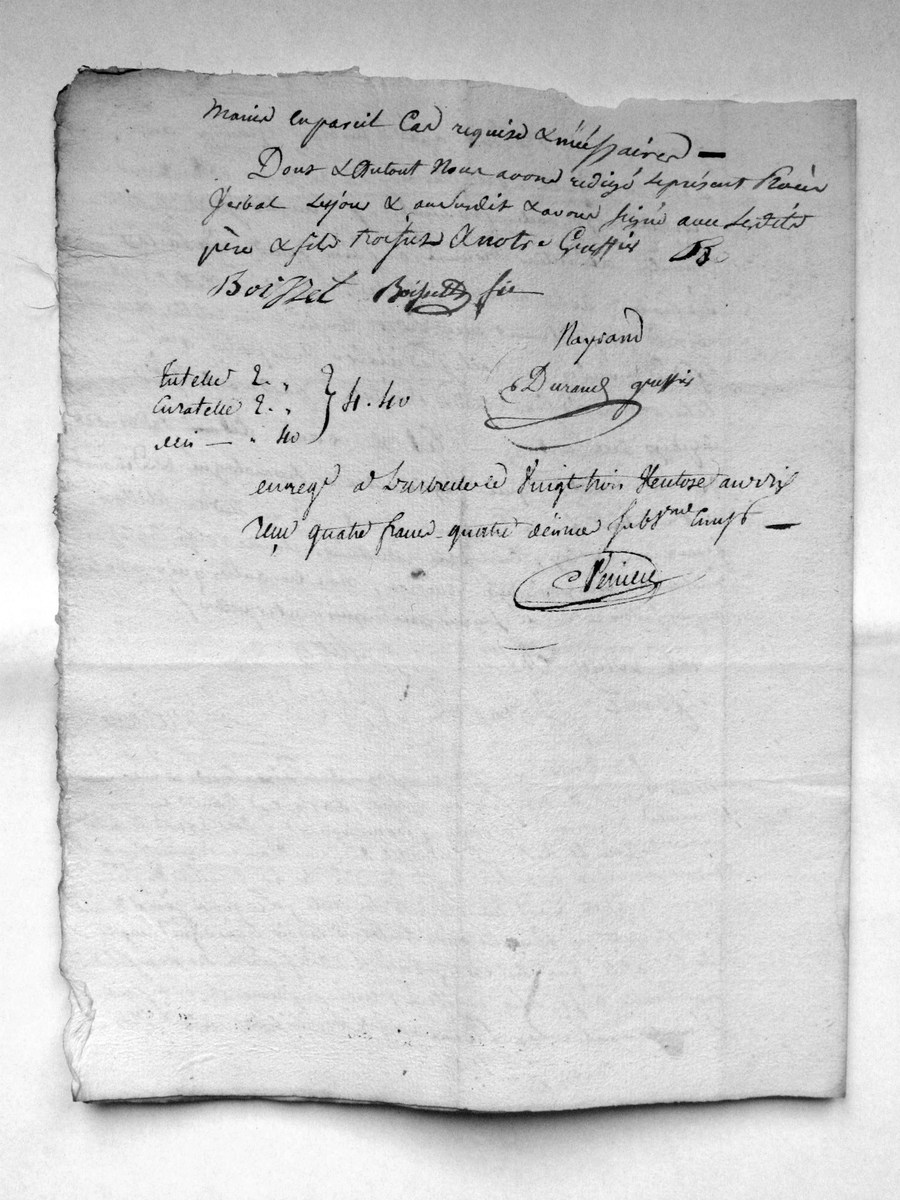 maniere en pareil Cas requise & nécéssaires —
Dont & du tout Nous avons redigé le présent Procès
Verbal lesjour & an susdit & avons signé avec lesdits
père & fils Boissets & notre Greffier
Boisset Boissett fis
Raynand
Durand greffier
tutelle 2. "
Curatelle 2. "
} 4.40
" 40
enregé a vingt trois Ventose an dix
reçu quatre francs quatre décime subvon Comps —
Perriere